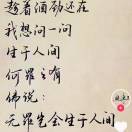 趁着酒劲还在
我想问一问
生于人间
何罪之有
佛说:
无罪岂会生于人间